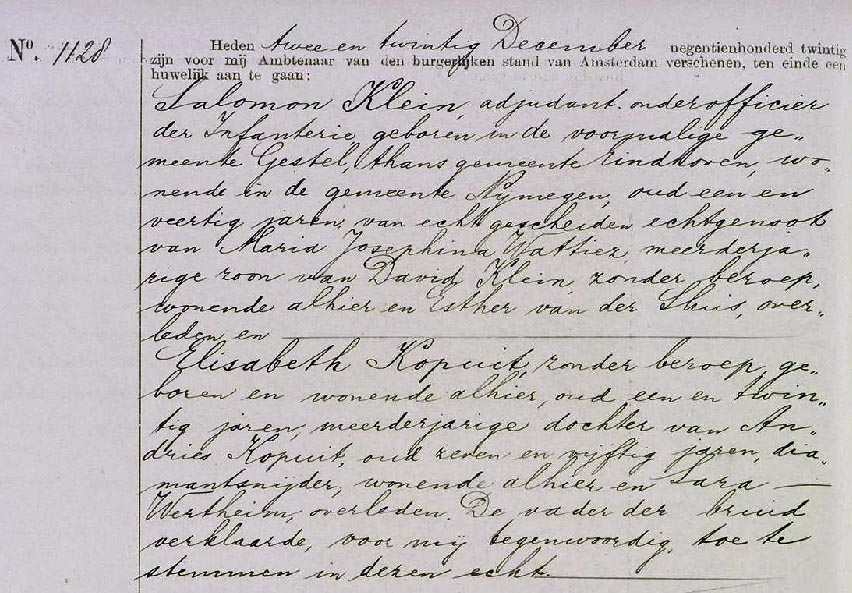 No. 1128
Heden twee en twintig December negentienhonderd twintig
zijn voor mij Ambtenaar van den burgerlijken stand van Amsterdam verschenen, ten einde een
huwelijk aan te gaan:
Salomon Klein, adjudant onderofficier
der Infanterie, geboren in de voormalige ge„
meente Gestel, thans gemeente Eindhoven, wo„
nende in de gemeente Nijmegen, oud een en
veertig jaren, van echt gescheiden echtgenoot
van Maria Josephina Wattiez, meerderja„
rige zoon van David Klein, zonder beroep,
wonende alhier en Esther van der Sluis, over„
leden en
Elisabeth Kopuit, zonder beroep, ge„
boren en wonende alhier, oud een en twin„
tig jaren, meerderjarige dochter van An„
dries Kopuit, oud zeven en vijftig jaren, dia„
mantsnijder, wonende alhier en Sara
Wertheim, overleden. De vader der bruid
verklaarde, voor mij tegenwoordig, toe te
stemmen in dezen echt.